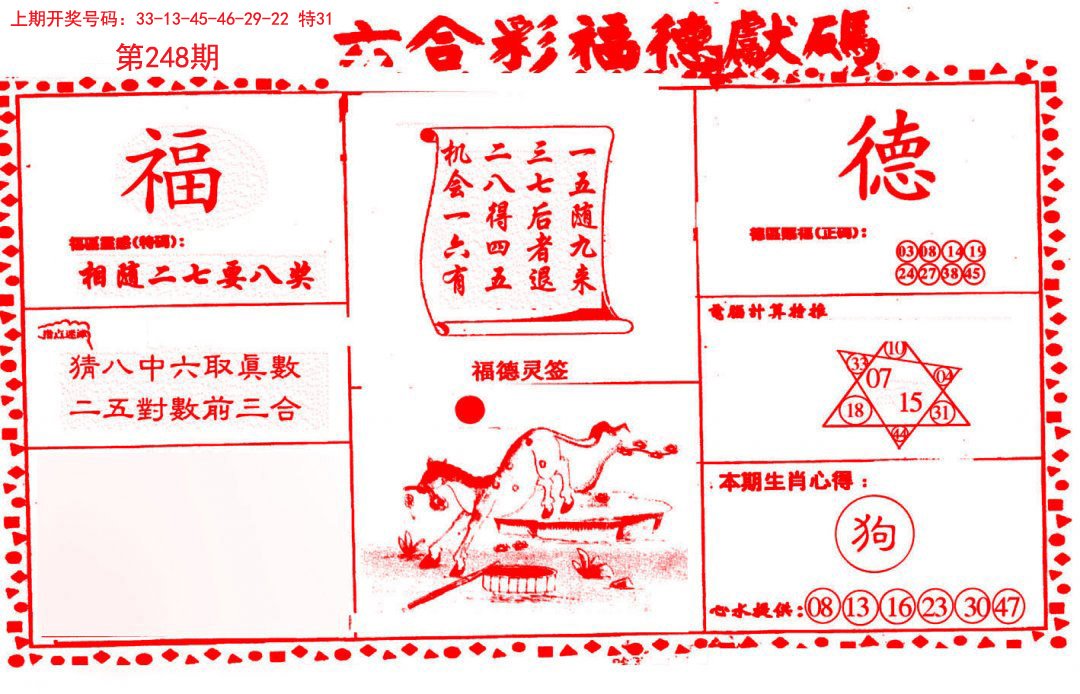 上期开奖号码：33-13-45-46-29-22 特31
第248期
六合彩福德獻碼
福
福區靈感(特码)：
相随二七要八奖
指点迷津
猜八中六取眞數
二五對數前三合
一五随九来
三七后者退
二八得四五
机会一六有
福德灵签
德
德區賜福(正码)：
03 08 14 19
24 27 38 45
電腦計算特推
10
33
07
04
18
15
31
44
本期生肖心得：
狗
心水提供：08 13 16 23 30 47